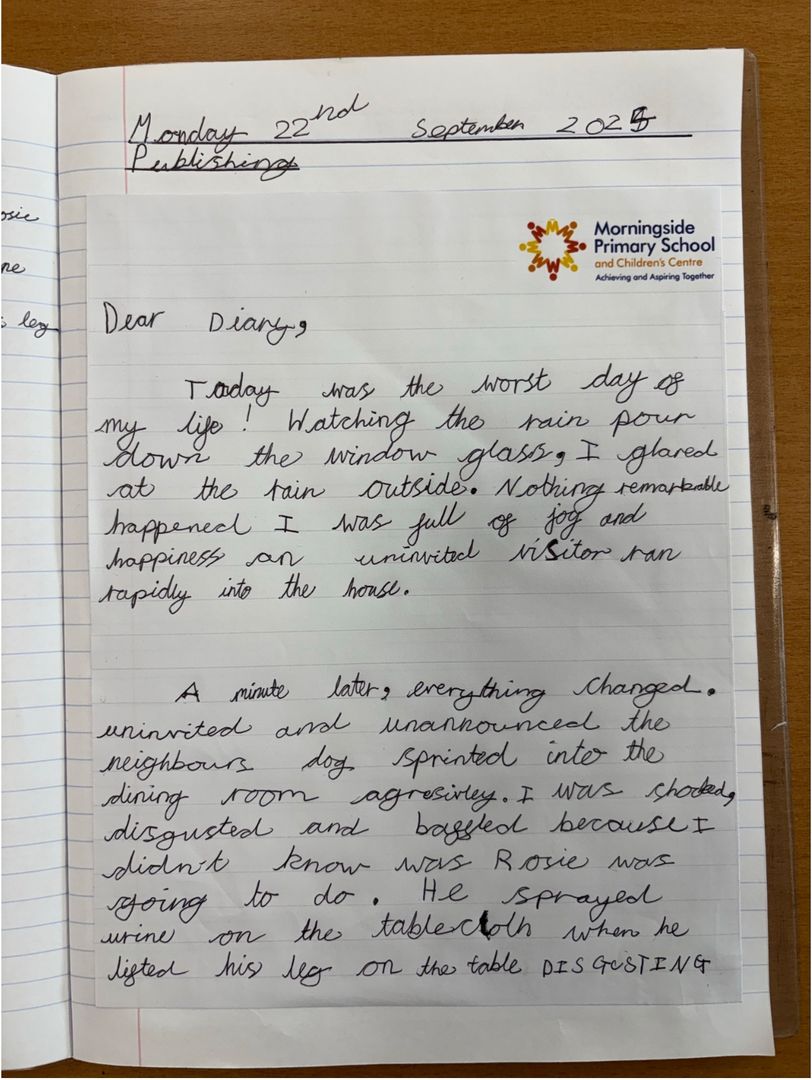 Monday 22nd September 2025
Publishing
osie
ne
leg
Morningside
Primary School
and Children's Centre
Achieving and Aspiring Together
Dear Diary,
Today was the worst day of
my life! Watching the rain pour
down the window glass, I glared
at the rain outside. Nothing remarkable
happened I was full of joy and
happiness an uninvited visitor ran
rapidly into the house.
A minute later, everything changed.
uninvited and unannounced the
neighbours dog sprinted into the
dining room agresivley. I was shocked,
disgusted and baffled because I
didn't know was Rosie was
going to do. He sprayed
urine on the tablecloth when he
lifted his leg on the table DISGUSTING